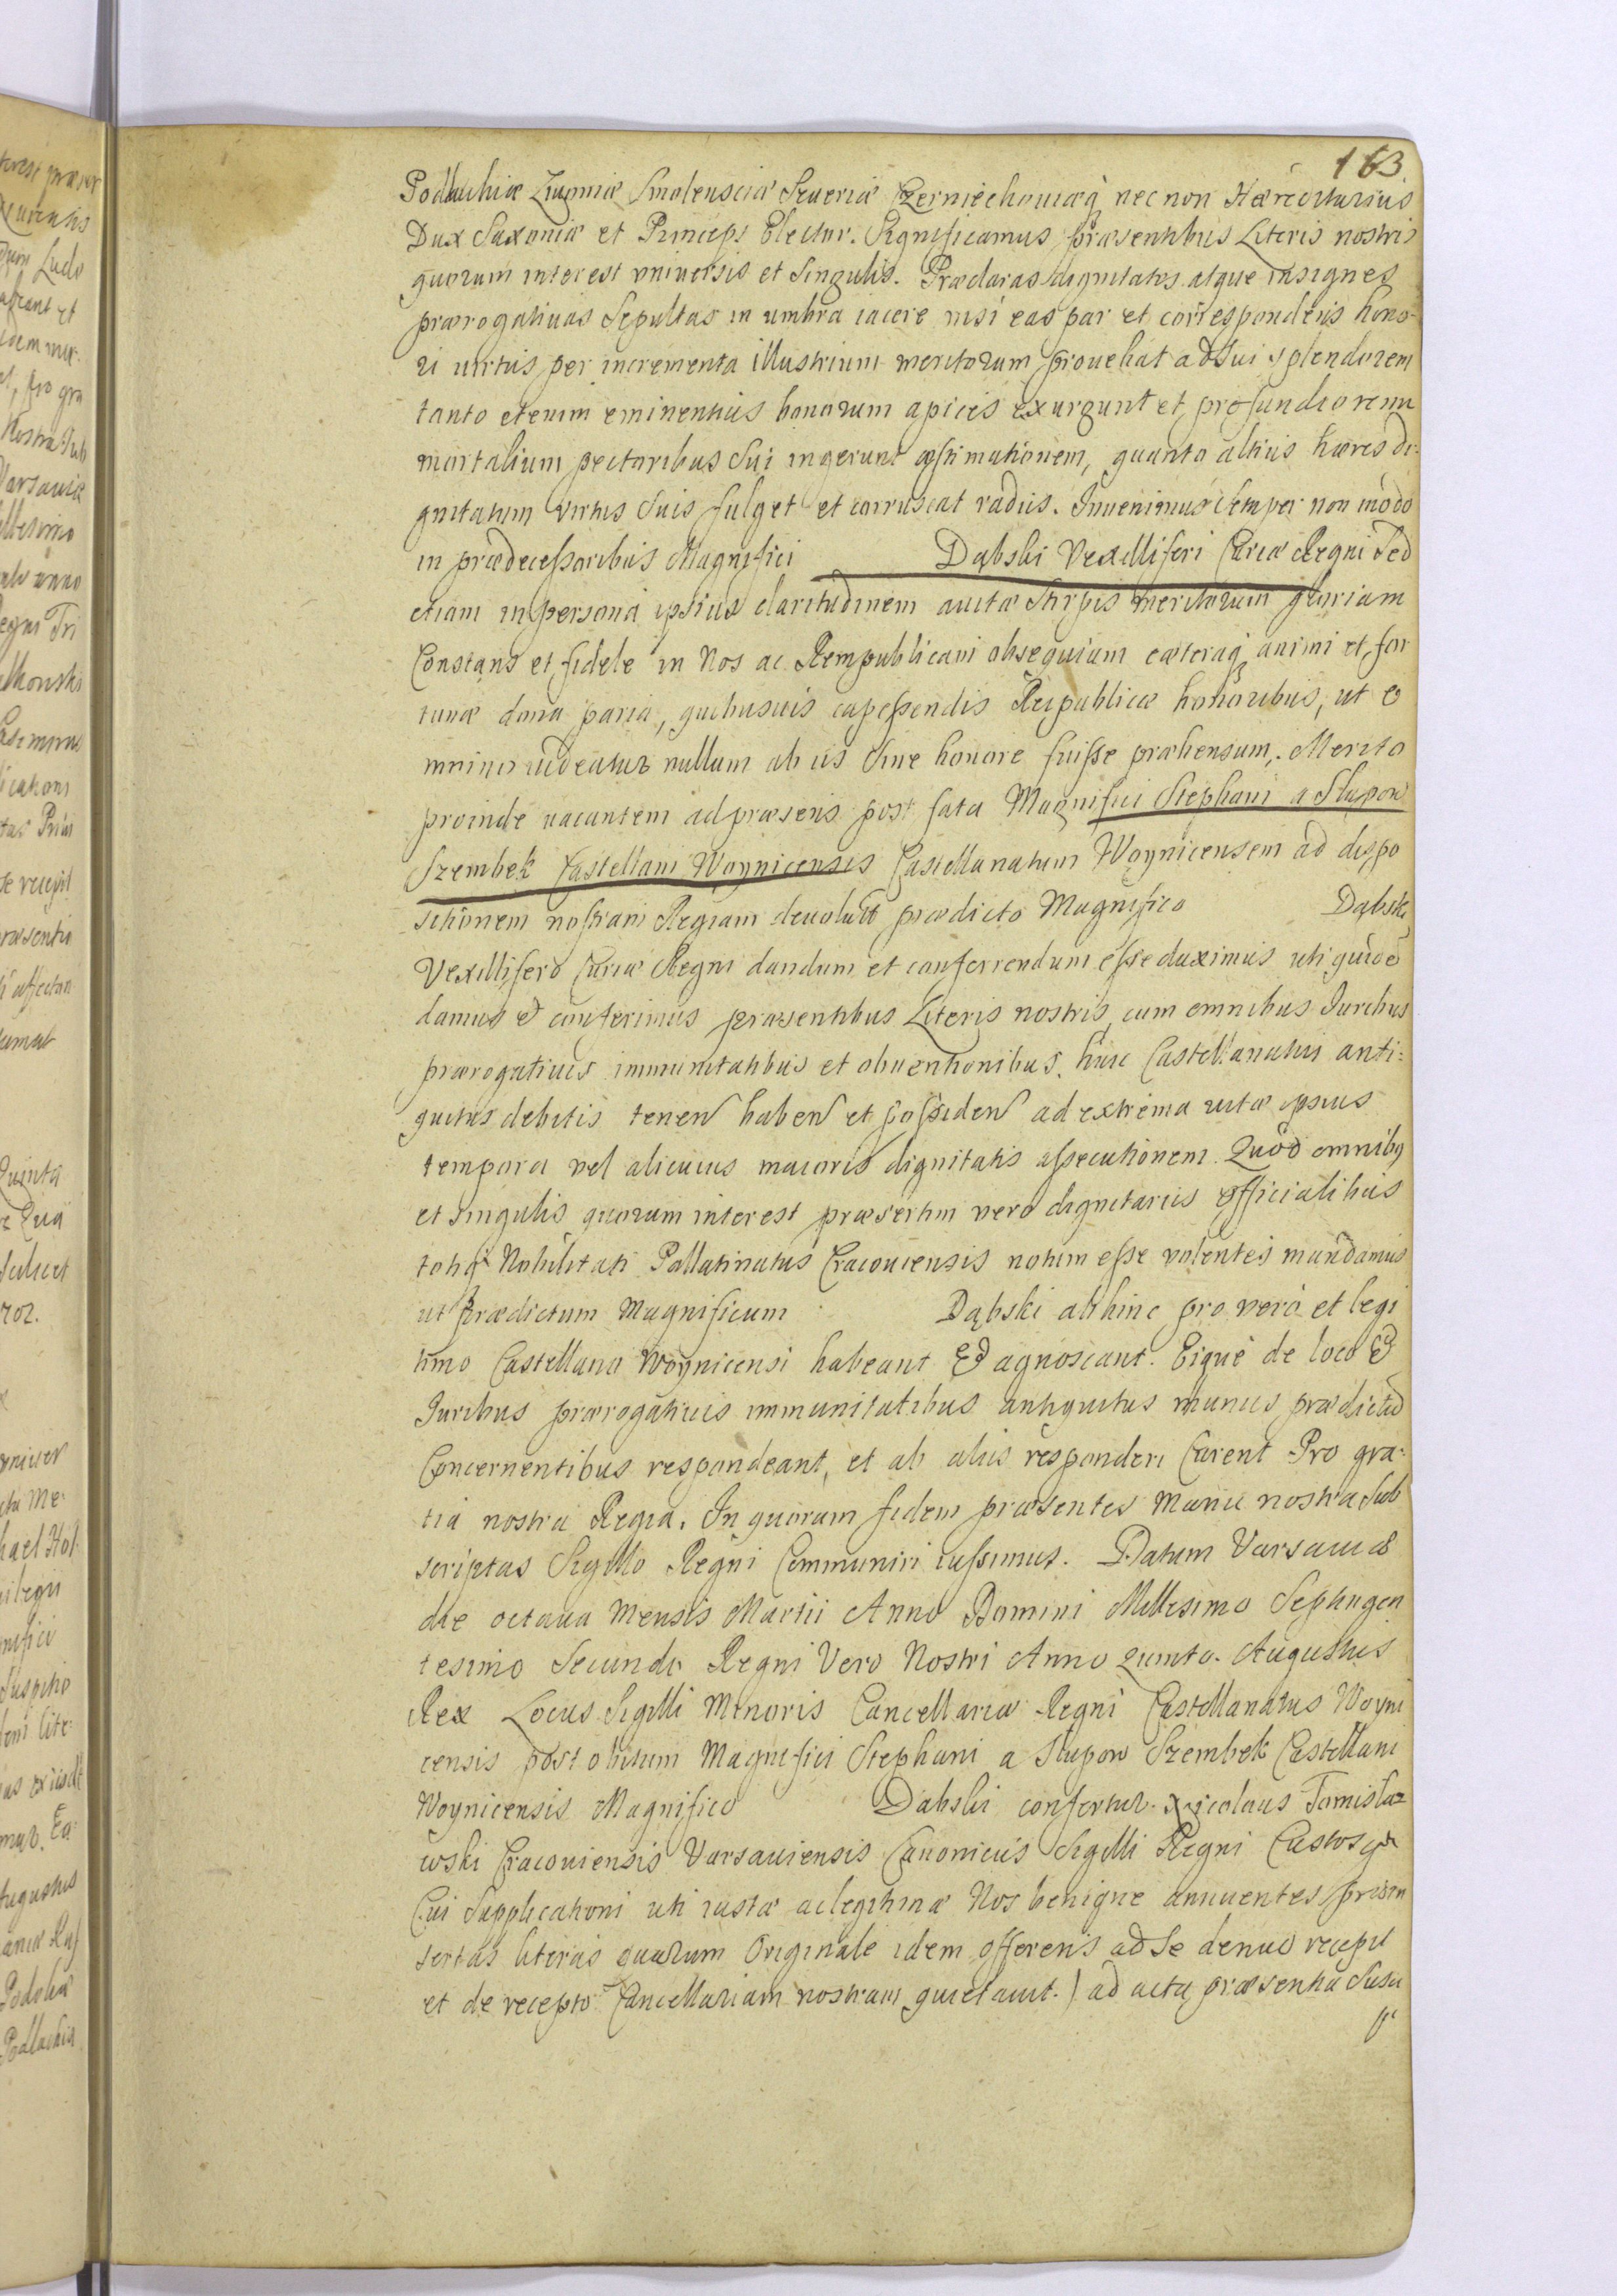 163
Podlachiæ Livoniæ Smolensciæ Seueriæ Czerniechouiæq nec non Hæreditarius
Dux Saxoniæ et Princeps Elector. Significamus præsentibus Literis nostris
quorum interest vniuersis et Singulis. Præclaras dignitates atque insignes
prærogatiuas Sepultas in umbra iacere nisi eas par et correspondens hono-
ri uirtus per incrementa illustrium meritorum prouehat ad Sui splendorem
tanto etenim eminentius honorum apices exurgunt et profundiorem
mortalium pectoribus Sui ingerunt æstimationem, quanto altius hæres di-
gnitatum virtus Suis fulget et corruscat radiis. Inuenimus Semper non modo
in prædecessoribus Magnifici Dąbski Vexilliferi Curiæ Regni Sed
etiam in persona ipsius claritudinem auitæ Stirpis meritorum gloriam
Constans et fidele in Nos ac Rempublicam obsequium cæteraq animi et for
tunæ dona paria, quibusuis capessendis Reipublicæ honoribus, ut o
mnino uideatur nullum ab iis Sine honore fuisse præhensum. Merito
proinde uacantem ad præsens post fata Magnifici Stephani a Słupow
Szembek Castellani Woynicensis Castellanatum Woynicensem ad dispo
sitionem nostram Regiam deuolutū prædicto Magnifico Dąbski
Vexillifero Curiæ Regni dandum et conferrendum esse duximus uti quidē
damus & conferimus præsentibus Literis nostris, cum omnibus Juribus
prærogatiuis immunitatibus et obuentionibus, huic Castellanatui anti-
quitus debitis tenen haben et possiden ad extrema uitæ ipsius
tempora vel alicuius maioris dignitatis assecutionem. Quod omnibq
et Singulis quorum interest præsertim vero dignitariis officialibus
totiq Nobilitati Pallatinatus Cracouiensis notum esse volentes mandamus
ut prædictum Magnificum Dąbski abhinc pro vero et legi
timo Castellano Woynicensi habeant & agnoscant. Eique de loco &
Juribus prærogatiuis immunitatibus antiquitus munus prædictū
Concernentibus respondeant, et ab aliis responderi Curent Pro gra-
tia nostra Regia. In quorum fidem præsentes Manu nostra Sub
scriptas Sigillo Regni Communiri iussimus. Datum Varsauiæ
die octaua Mensis Martii Anno Domini Millesimo Septingen
tesimo Secundo Regni Vero Nostri Anno Quinto. Augustus
Rex Locus Sigilli Minoris Cancellariæ Regni Castellanatus Woyni
censis post obitum Magnifici Stephani a Słupow Szembek Castellani
Woynicensis Magnifico Dąbski confertur. Nicolaus Tomisła-
wski Cracouiensis Varsauiensis Canonicus Sigilli Regni Custos
Cui Supplicationi uti iustæ ac legitimæ Nos benigne annuentes præin
sertas literas quarum Originale idem offerens ad Se denuo recepit
et de recepto Cancellariam nostram quietauit. ad acta præsentia Susci